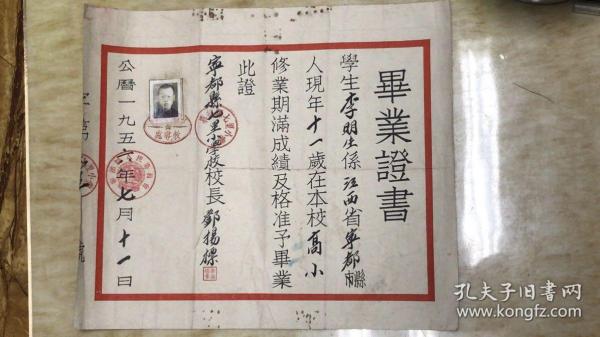 畢業證書
學生李明生係江西省寧都縣市
人現年十一歲在本校高小
修業期滿成績及格准予畢業
此證
寧都縣七里小學校校長鄧揚標
公曆一九五六年七月十一日
字第
號
孔夫子旧書网
www.kongfz.com